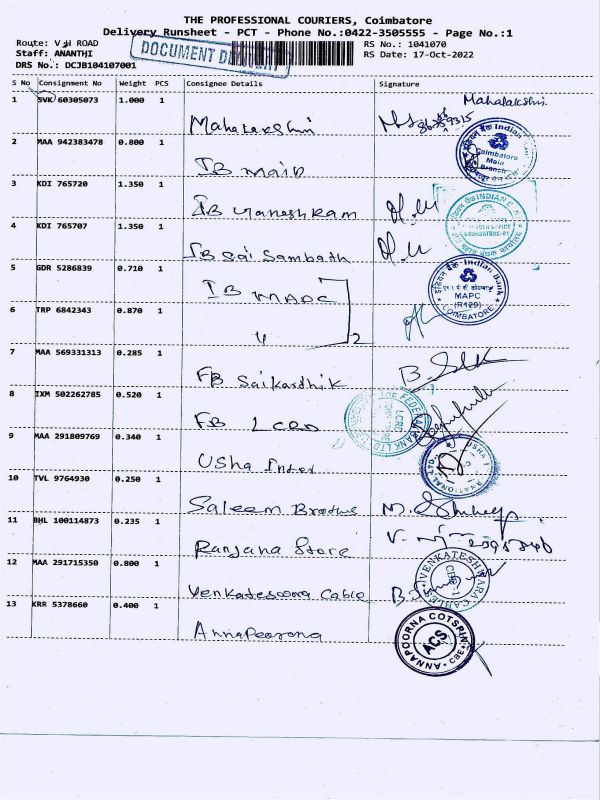 THE PROFESSIONAL COURIERS, Coimbatore
Delivery Runsheet - PCT - Phone No.:0422-3505555 - Page No.:1
Route: V H ROAD
RS No.: 1041070
Staff: ANANTHI
RS Date: 17-Oct-2022
DRS No.: DCJB104107001
DOCUMENT
S No Consignment No Weight PCS Consignee Details Signature
1 SVK 60305073 1.000 1 Mahalakshmi
Mahalakshmi
2 MAA 942383478 0.800 1 IB Main
Indian Bank
Coimbatore
Main
Branch
3 KDI 765720 1.350 1 IB Ganeshram
INDIAN
COIMBATORE-01
4 KDI 765707 1.350 1 IB Sai Sambath
5 GDR 5286839 0.710 1 IB MAPC
इंडियन बैंक Indian Bank
MAPC
(R120)
COIMBATORE
6 TRP 6842343 0.870 1 2
7 MAA 569331313 0.285 1 FB Saikarthik
8 IXM 502262785 0.520 1 FB LCRD
LCRD
9 MAA 291809769 0.340 1 Usha Inter
10 TVL 9764930 0.250 1 Saleem Brothers
11 BHL 100114873 0.235 1 Ranjana Store
12 MAA 291715350 0.800 1 Venkateswara Cable
VENKATESHWARA CABLE
13 KRR 5378660 0.400 1 Annapoorana
ANNAPOORNA COTSPIN
ACS
CBE